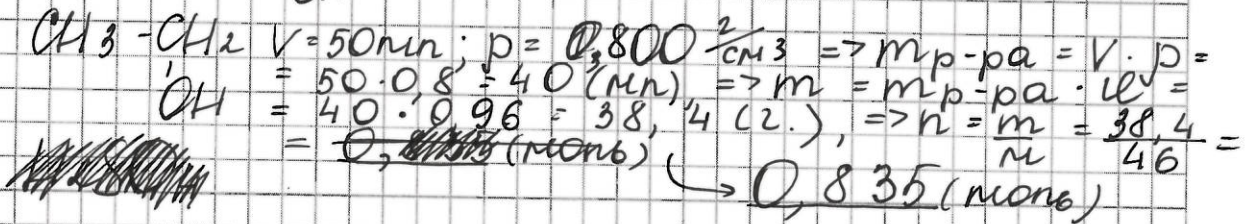 CH3-CH2 V=50мл; ρ= 0,800 г/см3 => m р-ра = V·ρ =
OH = 50·0,8 = 40 (мл), => m = m р-ра · ω =
= 40·0,96 = 38,4 (г.), => n = m/м = 38,4/46 =
= 0, (моль)
0,835 (моль)